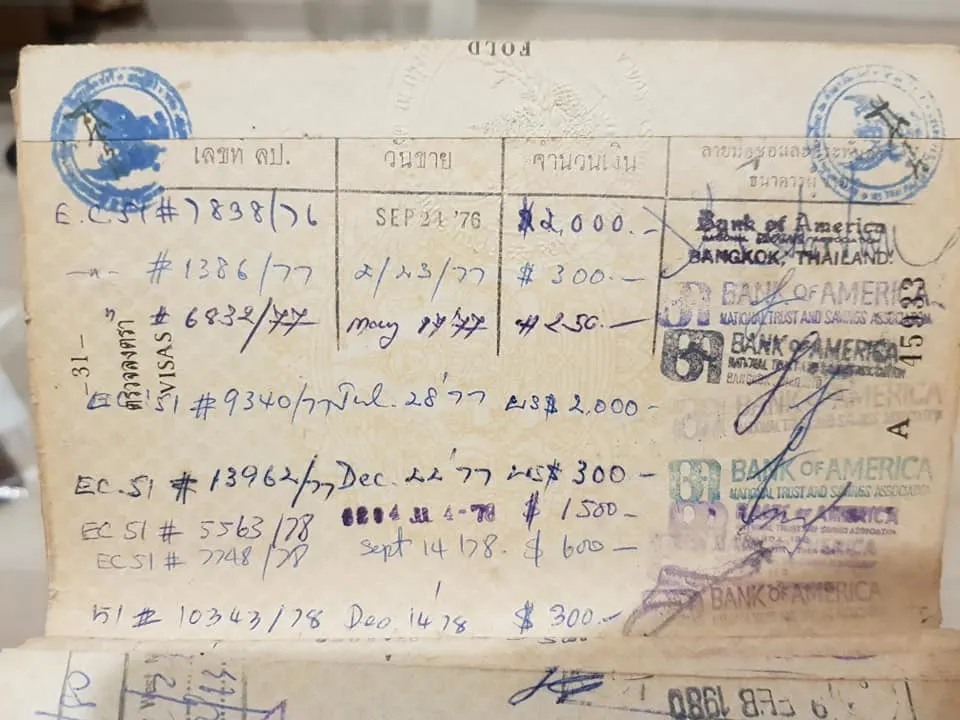 FOLD
เลขที่ ลป. วันขาย จำนวนเงิน ลายมือชื่อและประทับตรา
ธนาคาร
E.C. 51 # 7838/76 SEP 21 '76 $2,000.— Bank of America
BANGKOK, THAILAND.
—"— # 1386/77 2/23/77 $ 300.— BANK OF AMERICA
NATIONAL TRUST AND SAVINGS ASSOCIATION
" # 6832/77 $ 250.— BANK OF AMERICA
NATIONAL TRUST AND SAVINGS ASSOCIATION
51 # 9340/77 Jul. 28 '77 US$ 2,000— BANK OF AMERICA
NATIONAL TRUST AND SAVINGS ASSOCIATION
EC. 51 # 13962/77 Dec. 22 '77 US$ 300— BANK OF AMERICA
NATIONAL TRUST AND SAVINGS ASSOCIATION
EC 51 # 5563/78 $ 1500— BANK OF AMERICA
EC 51 # 7748/78 Sept 14 '78. $ 600— BANK OF AMERICA
51 # 10343/78 Dec 14 '78 $ 300.— BANK OF AMERICA
—31—
ตรวจลงตรา
VISAS
A 45933
FEB 1980